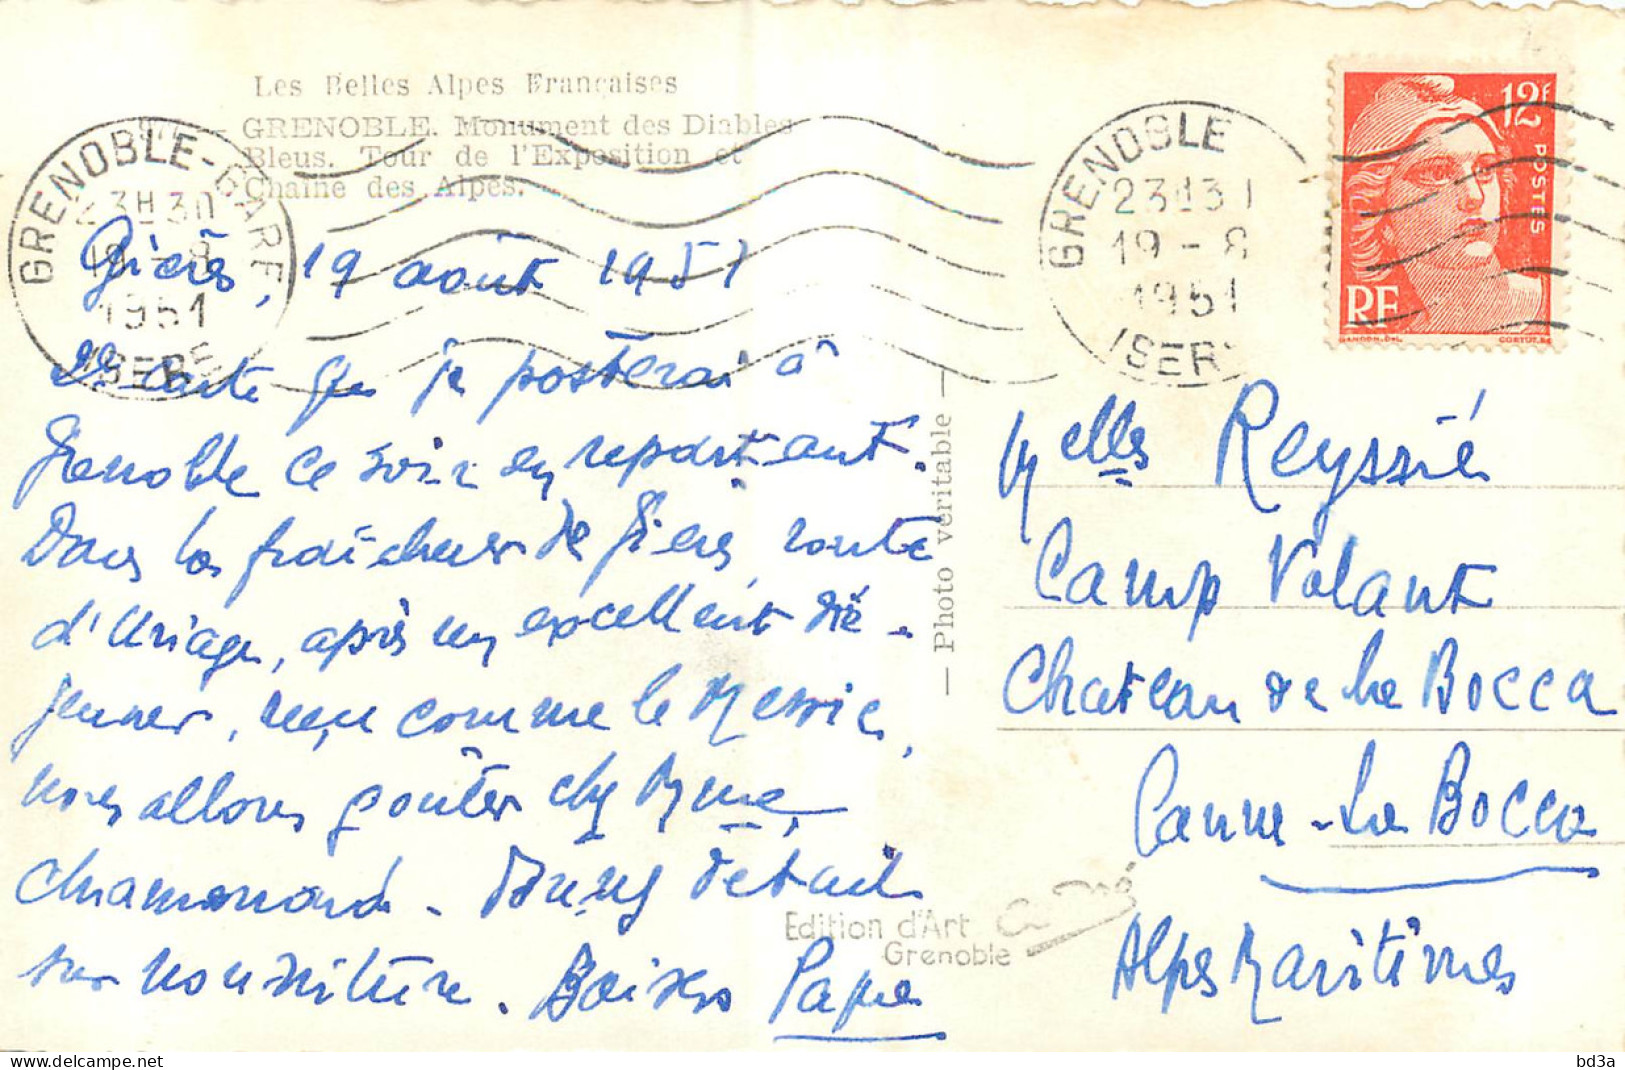 Les Belles Alpes Françaises
GRENOBLE. Monument des Diables
Bleus. Tour de l'Exposition et
Chaîne des Alpes.
GRENOBLE-GARE
23H30
19-8
1951
ISERE
GRENOBLE
23H31
19-8
1951
ISER
12F
POSTES
RF
GANDON.DEL.
CORTOT.SC
Gières, 19 août 1951
2e carte que je posterai à
Grenoble ce soir en repartant.
Dans la fraîcheur de Gières, route
d'Uriage, après un excellent dé-
jeuner, reçu comme le Messie,
nous allons goûter chez Mme
Chamonard - Donnez détails
sur nourriture. Baisers Papa
— Photo veritable —
Edition d'Art
Grenoble
Melles Reyssié
Camp Volant
Chateau de la Bocca
Cannes-La Bocca
Alpes Maritimes
bd3a